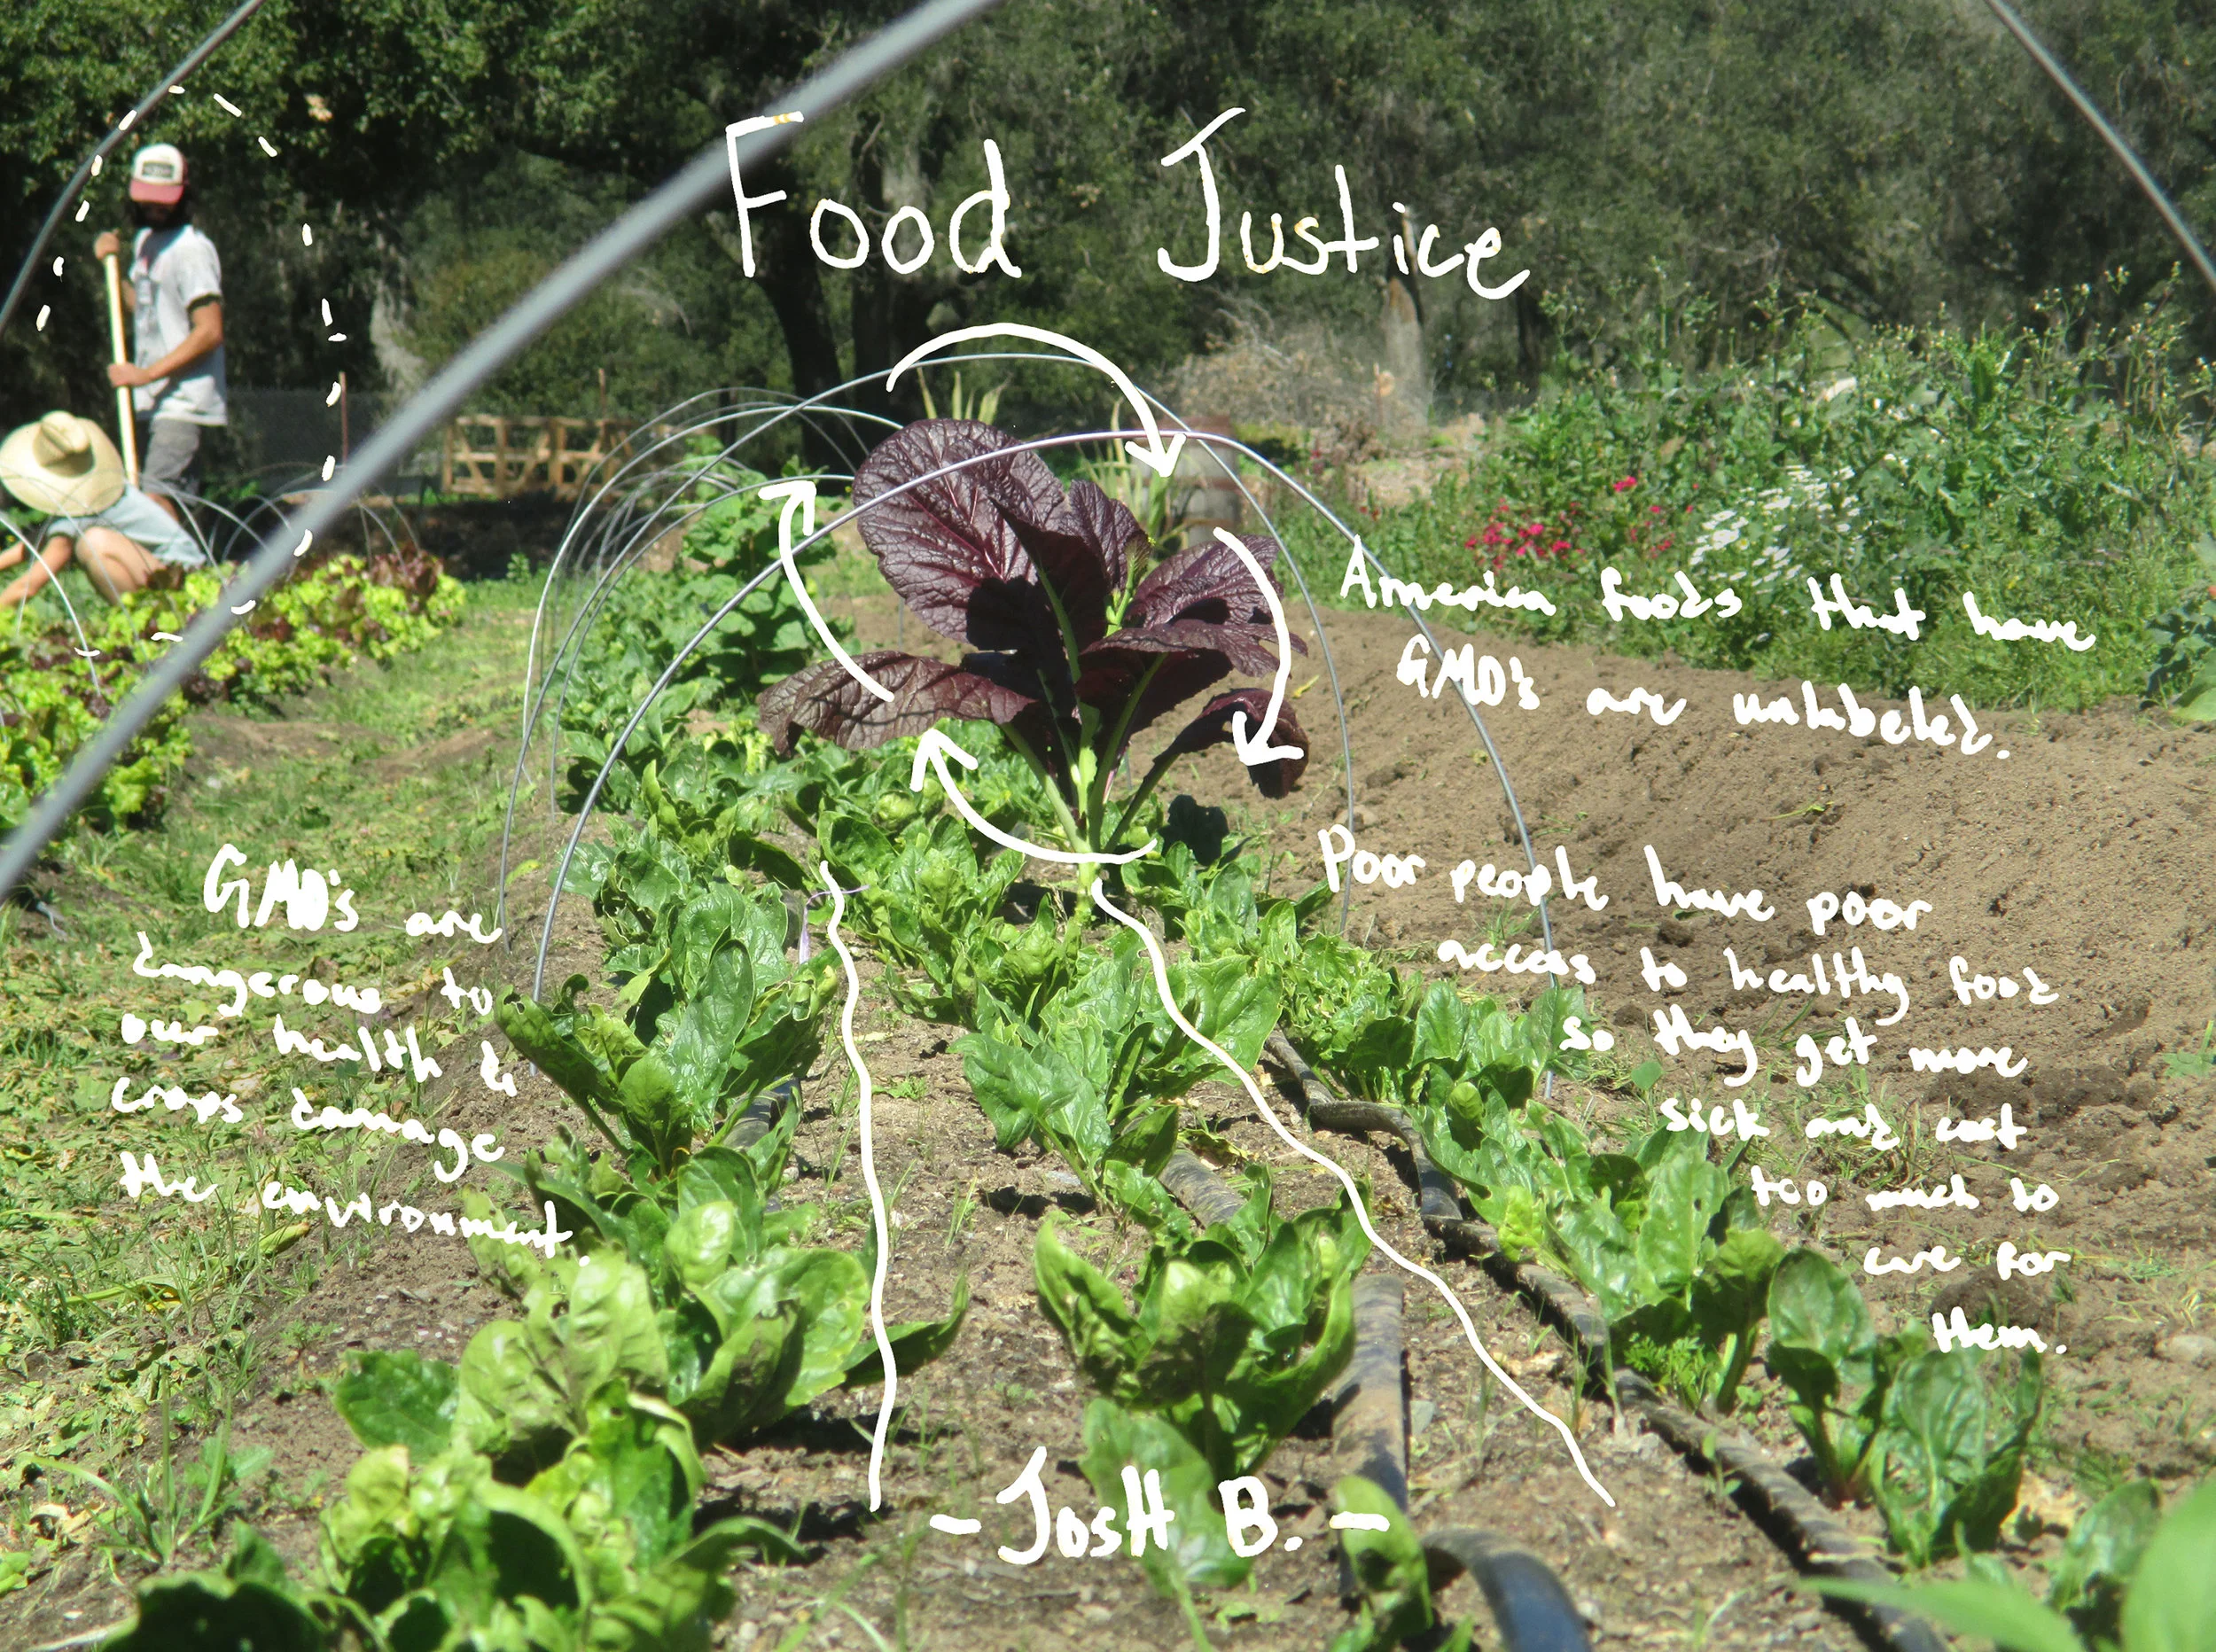 Food Justice
American foods that have
GMO's are unlabeled.
Poor people have poor
access to healthy food
so they get more
sick and cost
too much to
care for
them.
GMO's are
dangerous to
our health &
crops damage
the environment.
- JosH B. -